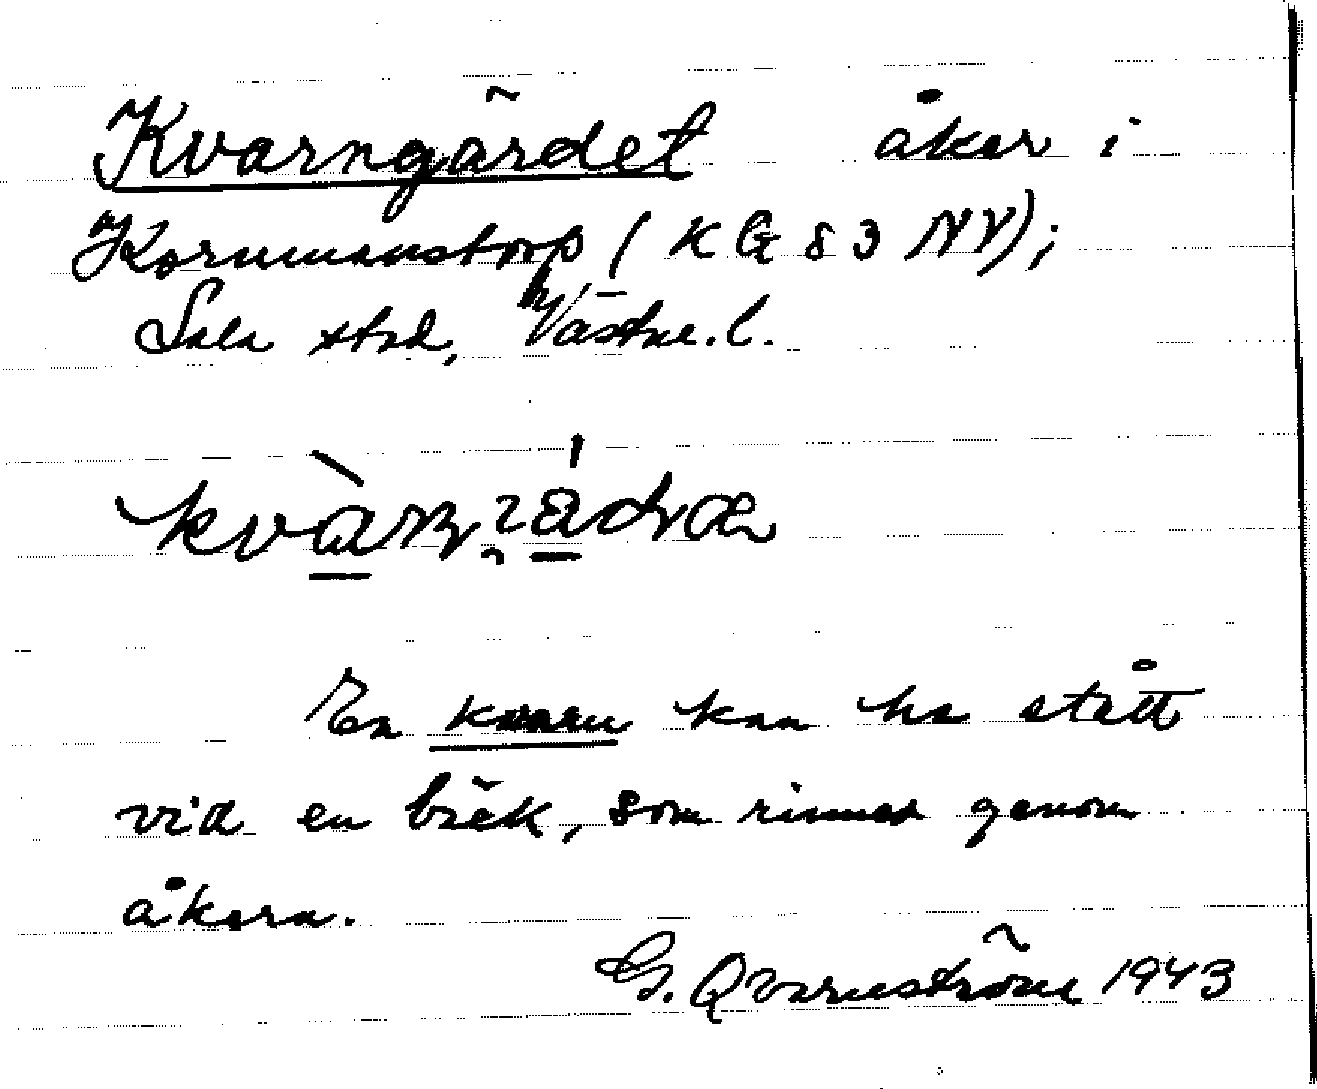 Kvarngärdet åker i
Kornmanstorp (KG 83 NV);
Sala stad, Västm. l.
En kvarn kan ha stått
vid en bäck, som rinner genom
åkern.
G. Qvarnström 1943